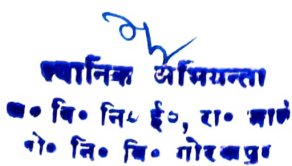 स्थानिक अभियन्ता
ख० वि० नि० ई०, रा० मार्ग
लो० नि० वि० गोरखपुर